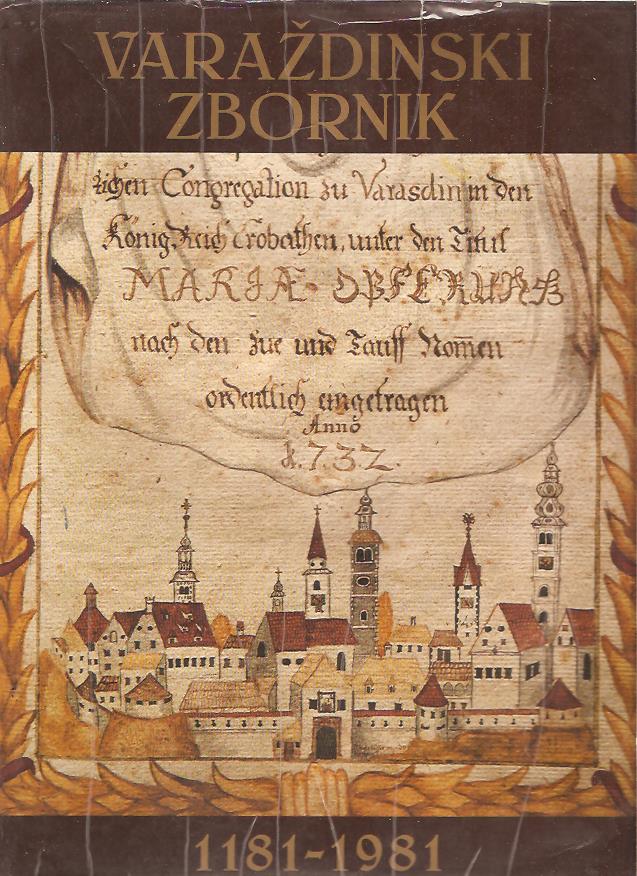 VARAŽDINSKI
ZBORNIK
Congregation zu Varasdin in den
König Reich Crobathen, unter den Titul
MARIÆ OPFERUNG
nach den Zue und Tauff Nomen
ordentlich eingetragen
Anno
1.7.32.
1181-1981